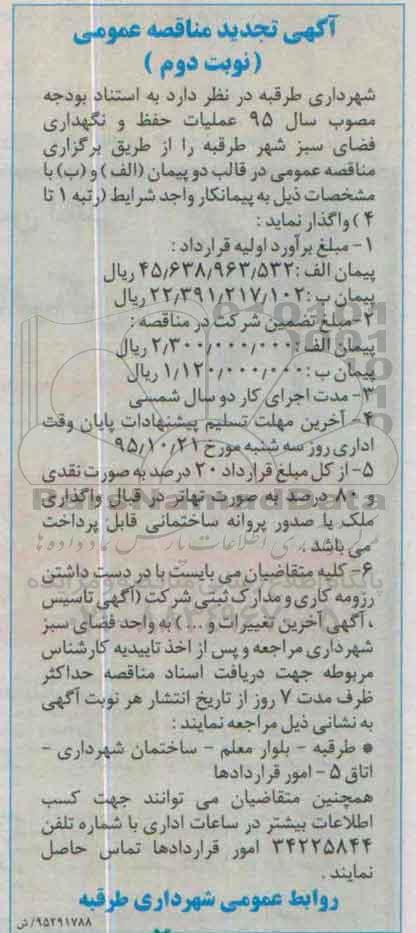 آگهی تجدید مناقصه عمومی
(نوبت دوم)
شهرداری طرقبه در نظر دارد به استناد بودجه
مصوب سال ۹۵ عملیات حفظ و نگهداری
فضای سبز شهر طرقبه را از طریق برگزاری
مناقصه عمومی در قالب دو پیمان (الف) و (ب) با
مشخصات ذیل به پیمانکار واجد شرایط (رتبه ۱ تا
۴) واگذار نماید :
۱- مبلغ برآورد اولیه قرارداد :
پیمان الف :۴۵٫۶۳۸٫۹۶۳٫۵۳۲ ریال
پیمان ب :۲۲٫۳۹۱٫۲۱۷٫۱۰۲ ریال
۲- مبلغ تضمین شرکت در مناقصه :
پیمان الف :۲٫۳۰۰٫۰۰۰٫۰۰۰ ریال
پیمان ب :۱٫۱۲۰٫۰۰۰٫۰۰۰ ریال
۳- مدت اجرای کار دو سال شمسی
۴- آخرین مهلت تسلیم پیشنهادات پایان وقت
اداری روز سه شنبه مورخ ۹۵/۱۰/۲۱
۵- از کل مبلغ قرارداد ۲۰ درصد به صورت نقدی
و ۸۰ درصد به صورت تهاتر در قبال واگذاری
ملک یا صدور پروانه ساختمانی قابل پرداخت
می باشد .
۶- کلیه متقاضیان می بایست با در دست داشتن
رزومه کاری و مدارک ثبتی شرکت (آگهی تاسیس
، آگهی آخرین تغییرات و ...) به واحد فضای سبز
شهرداری مراجعه و پس از اخذ تاییدیه کارشناس
مربوطه جهت دریافت اسناد مناقصه حداکثر
ظرف مدت ۷ روز از تاریخ انتشار هر نوبت آگهی
به نشانی ذیل مراجعه نمایند :
* طرقبه - بلوار معلم - ساختمان شهرداری -
اتاق ۵ - امور قراردادها
همچنین متقاضیان می توانند جهت کسب
اطلاعات بیشتر در ساعات اداری با شماره تلفن
۳۴۲۲۵۸۴۴ امور قراردادها تماس حاصل
نمایند .
روابط عمومی شهرداری طرقبه
۹۵۲۹۱۷۸۸/ش